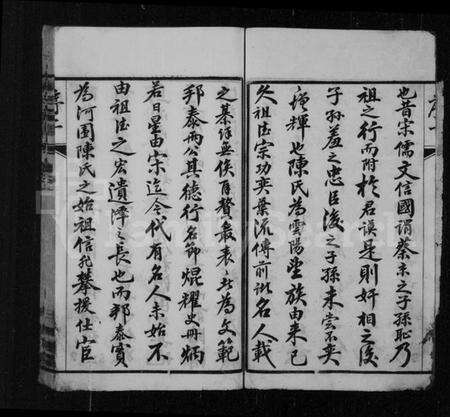 也昔宋儒文信國謂蔡京之子孫恥乃
祖之行而附於君謨是則奸相之後
子孫羞之忠臣後之子孫未嘗不奕
煇也陳氏為雲陽望族由來已
久祖德宗功奕葉流傳前哲名人載
之綦詳無俟再贅最表表者為文範
邦泰兩公其德行名節焜耀史冊炳
若日星由宋迄今代有名人未始不
由祖德之宏遺澤之長也而邦泰實
為河圖陳氏之始祖信孔攀援仕宦